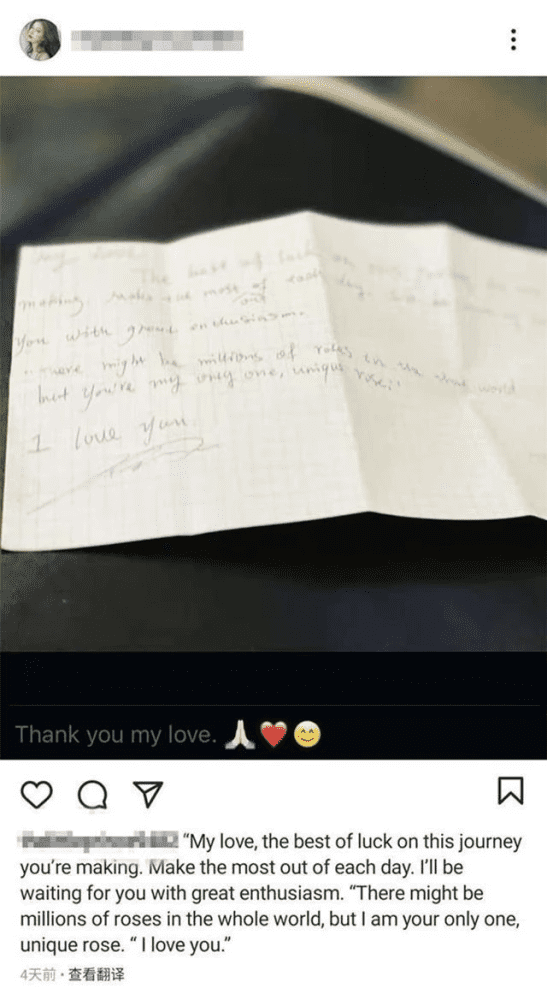 My love
The best of luck on
making. Make the most of each day.
out
You with great enthusiasm.
might be millions of in the world
but you're my only one, unique rose."
I love you
Thank you my love. 🙏❤️😊
"My love, the best of luck on this journey
you're making. Make the most out of each day. I'll be
waiting for you with great enthusiasm. "There might be
millions of roses in the whole world, but I am your only one,
unique rose. " I love you."
4天前 · 查看翻译